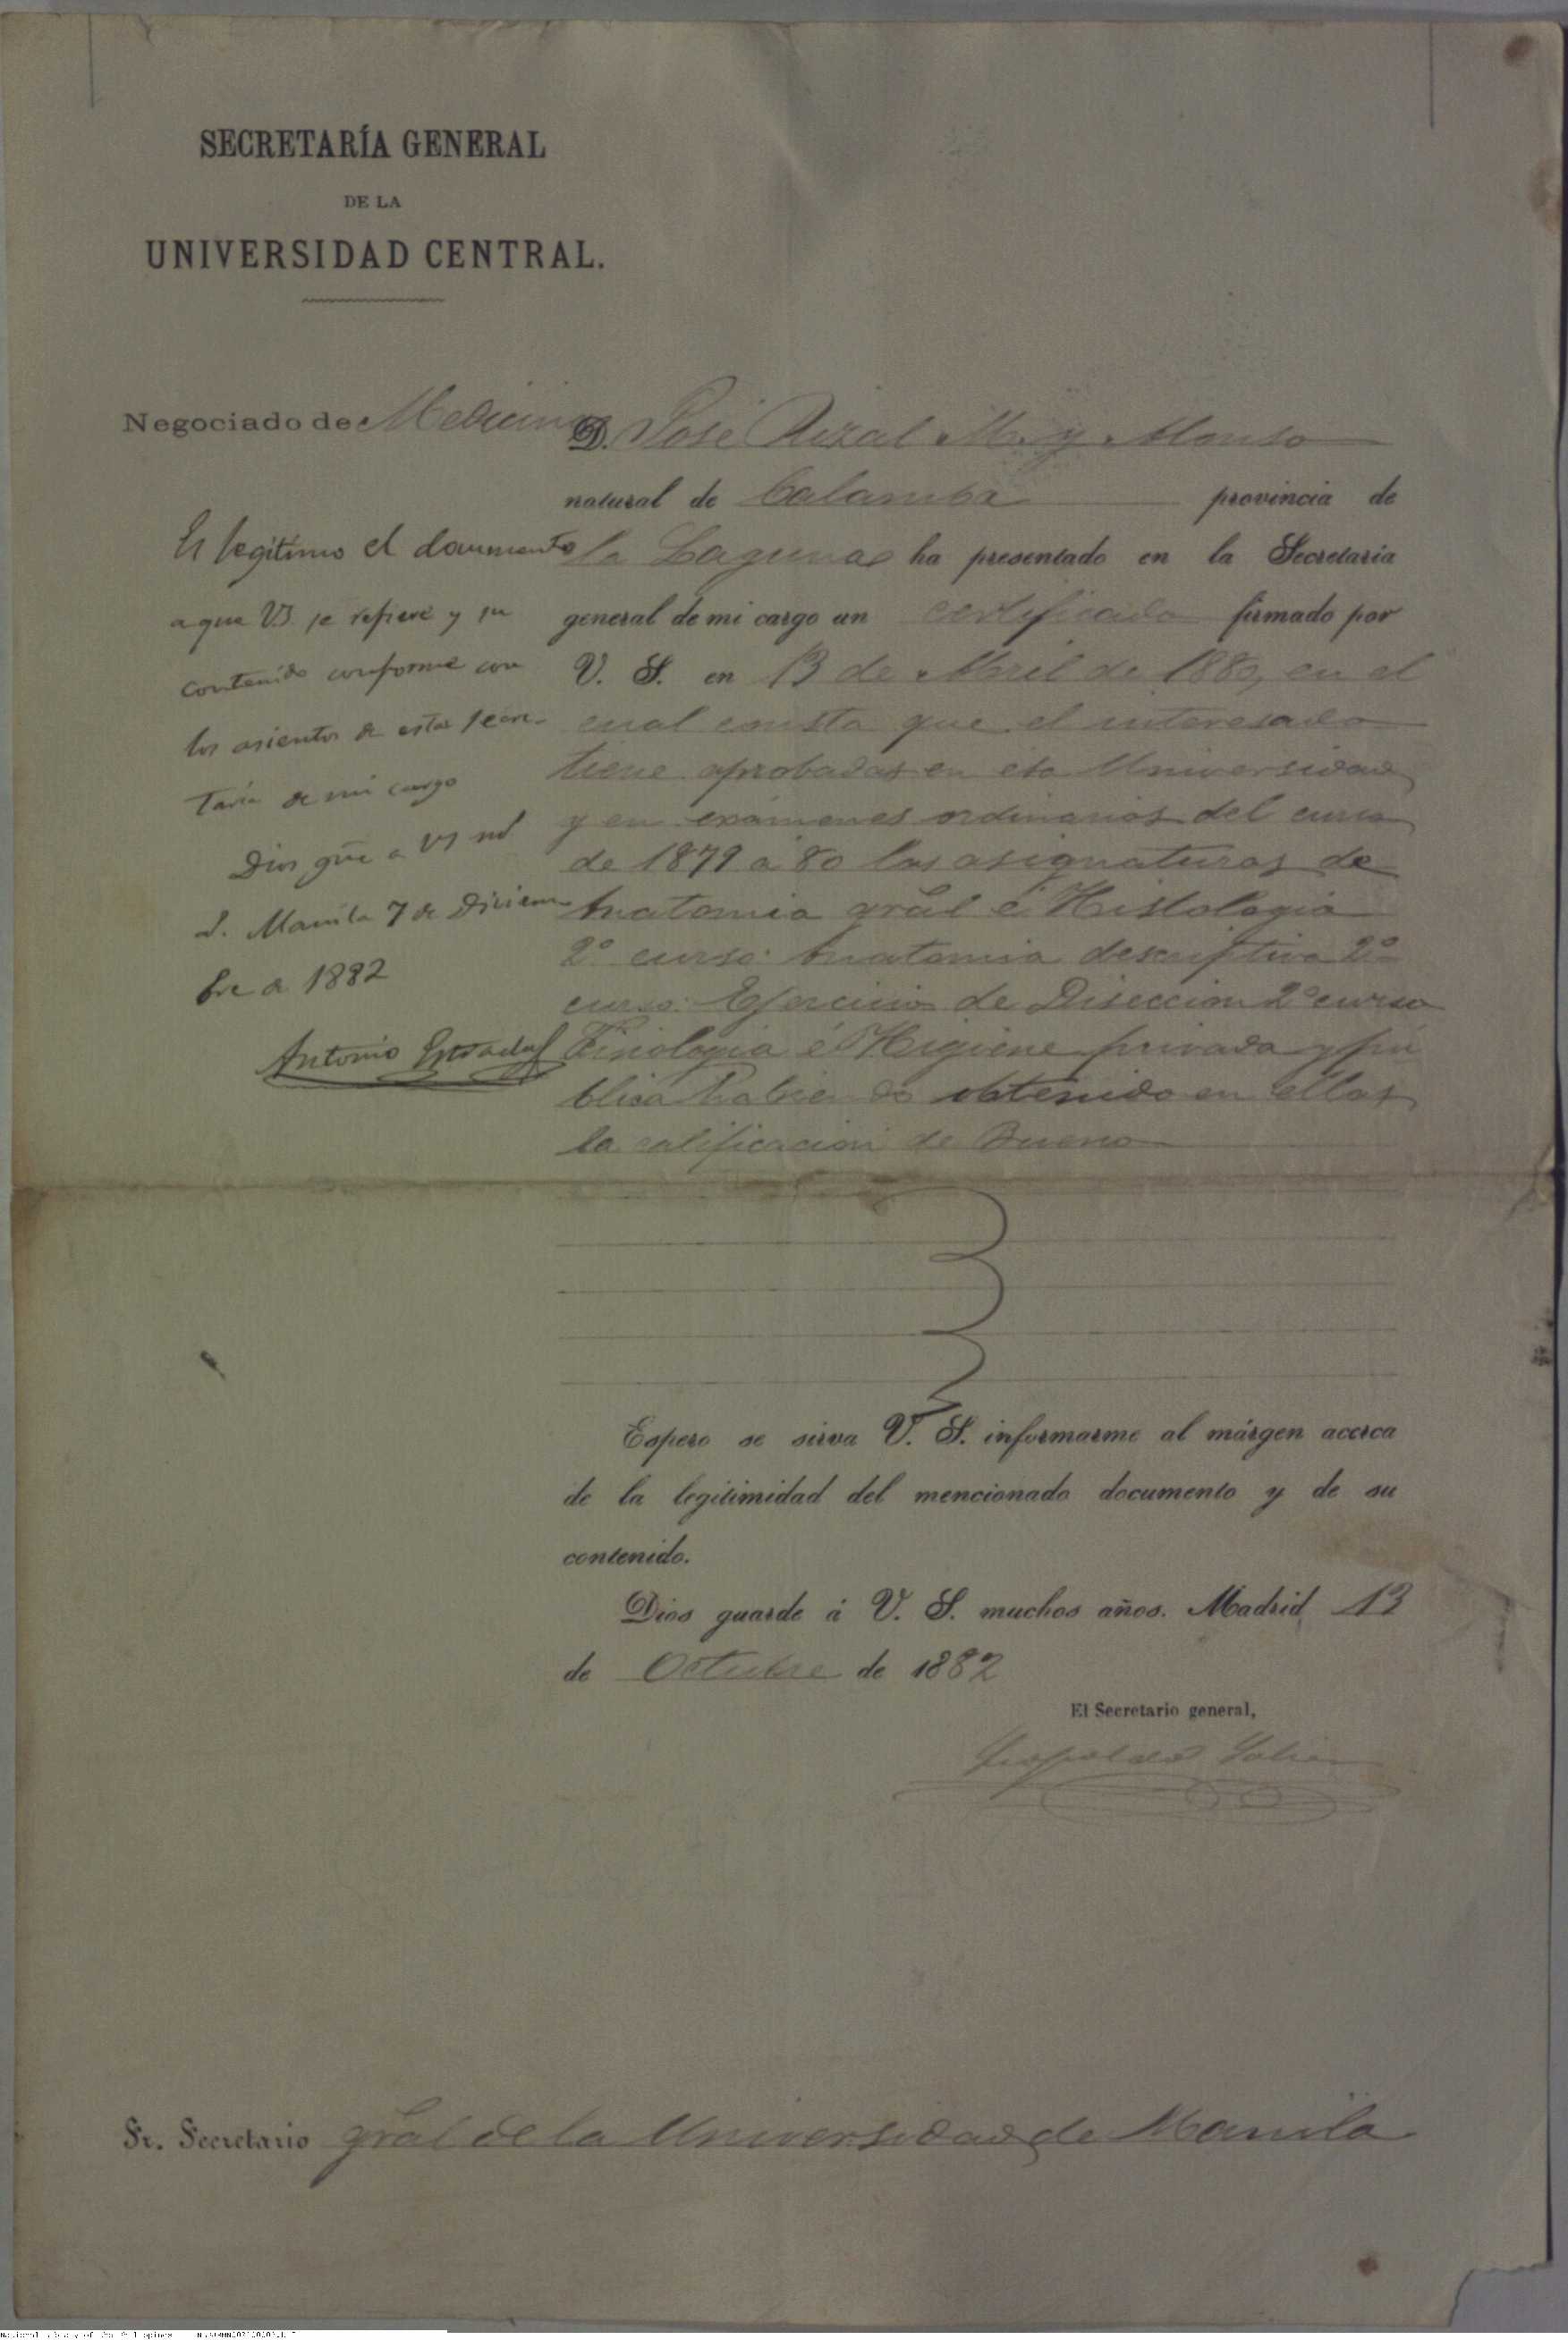 SECRETARÍA GENERAL
DE LA
UNIVERSIDAD CENTRAL.
Negociado de Medicina
Es legitimo el documento
a que VS se refiere y su
contenido conforme con
los asientos de esta Secre-
taria de mi cargo
Dios gũe a VS ms
as. Manila 7 de Diciem
bre de 1882
Antonio Estrada
D. José Rizal M. y Alonso
natural de Calamba provincia de
la Laguna ha presentado en la Secretaria
general de mi cargo un certificado firmado por
V. S. en 13 de Abril de 1882, en el
cual consta que el interesado
tiene aprobadas en esa Universidad
y en exámenes ordinarios del curso
de 1879 a 80 las asignaturas de
Anatomia gral é Histologia
2º curso: Anatomia descriptiva 2º
curso: Ejercicios de Diseccion 2º curso
Fisiologia é Higiene privada y pú
blica habiendo obtenido en ellas
la calificacion de Bueno
Espero se sirva V. S. informarme al márgen acerca
de la legitimidad del mencionado documento y de su
contenido.
Dios guarde á V. S. muchos años. Madrid 13
de Octubre de 1882
El Secretario general,
Leopoldo Solier
Sr. Secretario gral de la Universidad de Manila
National Library of the Philippines